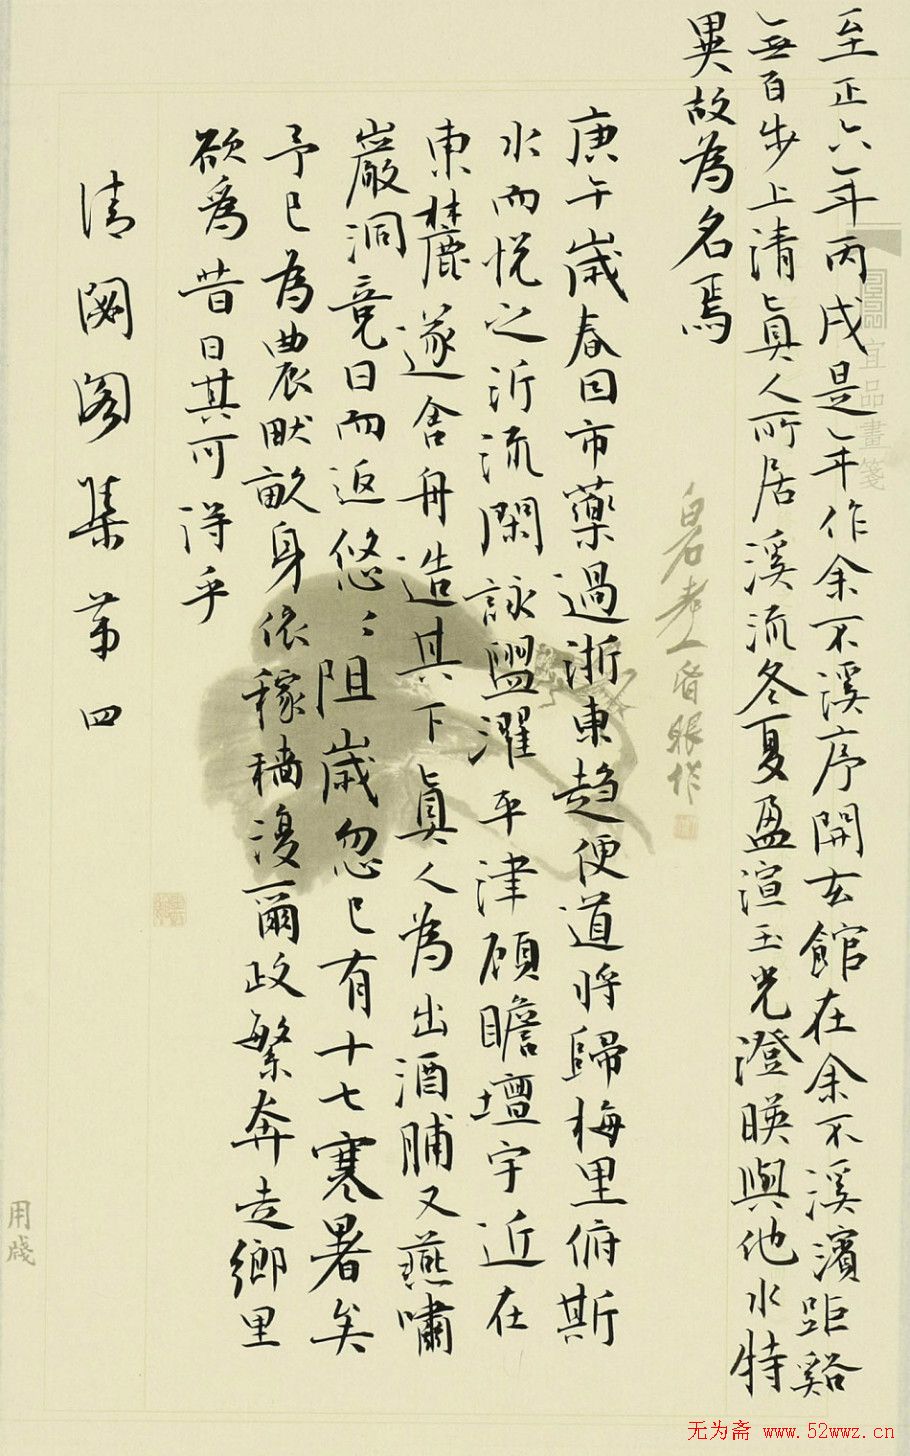 至正六年丙戌是年作余不溪序開玄館在余不溪濱距谿
無百步上清真人所居溪流冬夏盈渲玉光澄暎與他水特
異故為名焉
庚午歲春因市藥過浙東趋便道將歸梅里俯斯
水而悅之沂流閑詠盥濯平津顧瞻壇宇近在
東麓遂舍舟造其下真人為出酒脯又燕嘯
巖洞竟日而返悠〻阻歲忽已有十七寒暑矣
予已為農畎畝身依稼穡漫爾政繁奔走鄉里
欲為昔日其可得乎
清閟閣集第四
白石老人昏眼作
宜品畫箋
用牋
无为斋 www.52wwz.cn